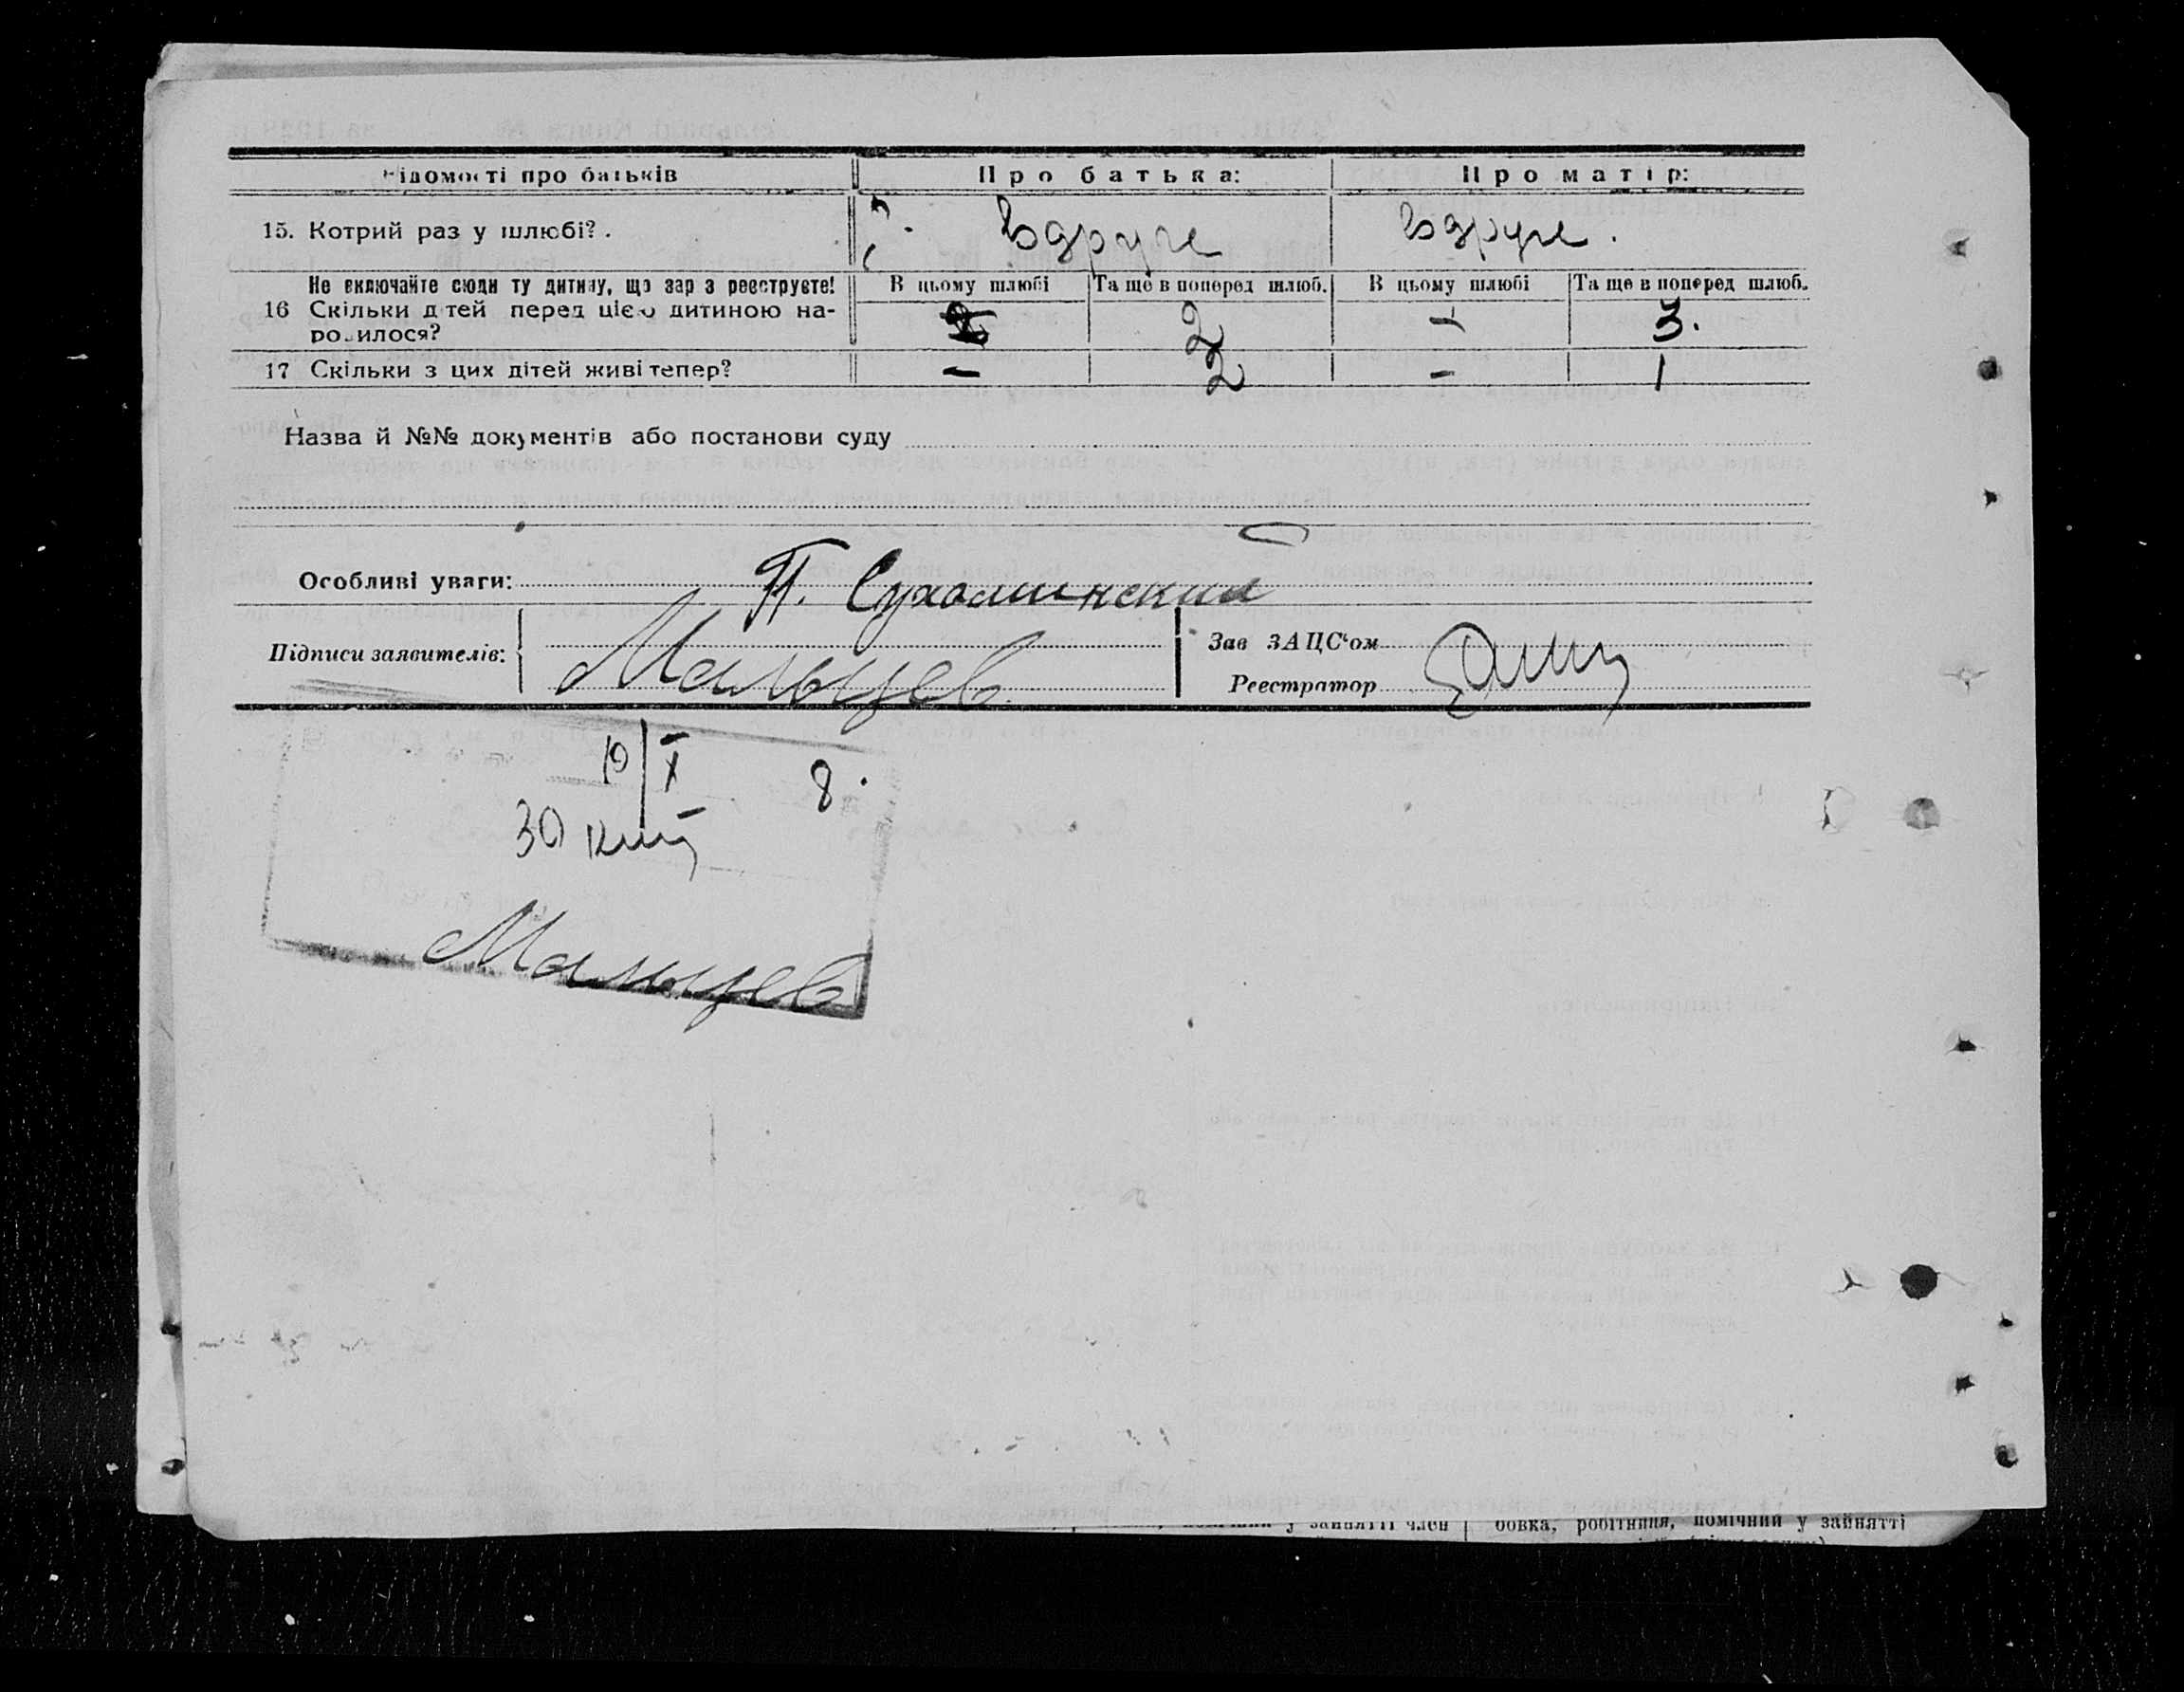 Відомості про батьків Про батька: Про матір:
15. Котрий раз у шлюбі? . Вдруге Вдруге.
Не включайте сюди ту дитину, що зараз реєструєте! В цьому шлюбі Та ще в поперед шлюб. В цьому шлюбі Та ще в поперед шлюб.
16 Скільки дітей перед цією дитиною на- 2 – 3.
родилося?
17 Скільки з цих дітей живі тепер? – 2 – 1
Назва й №№ документів або постанови суду
Особливі уваги: П. Сухоминский
Підписи заявителів: Мальцев
Зав ЗАЦС'ом
Реєстратор
10/X 8.
30
Мальцев
у зайнятті член бовка, робітниця, помічний у зайнятті